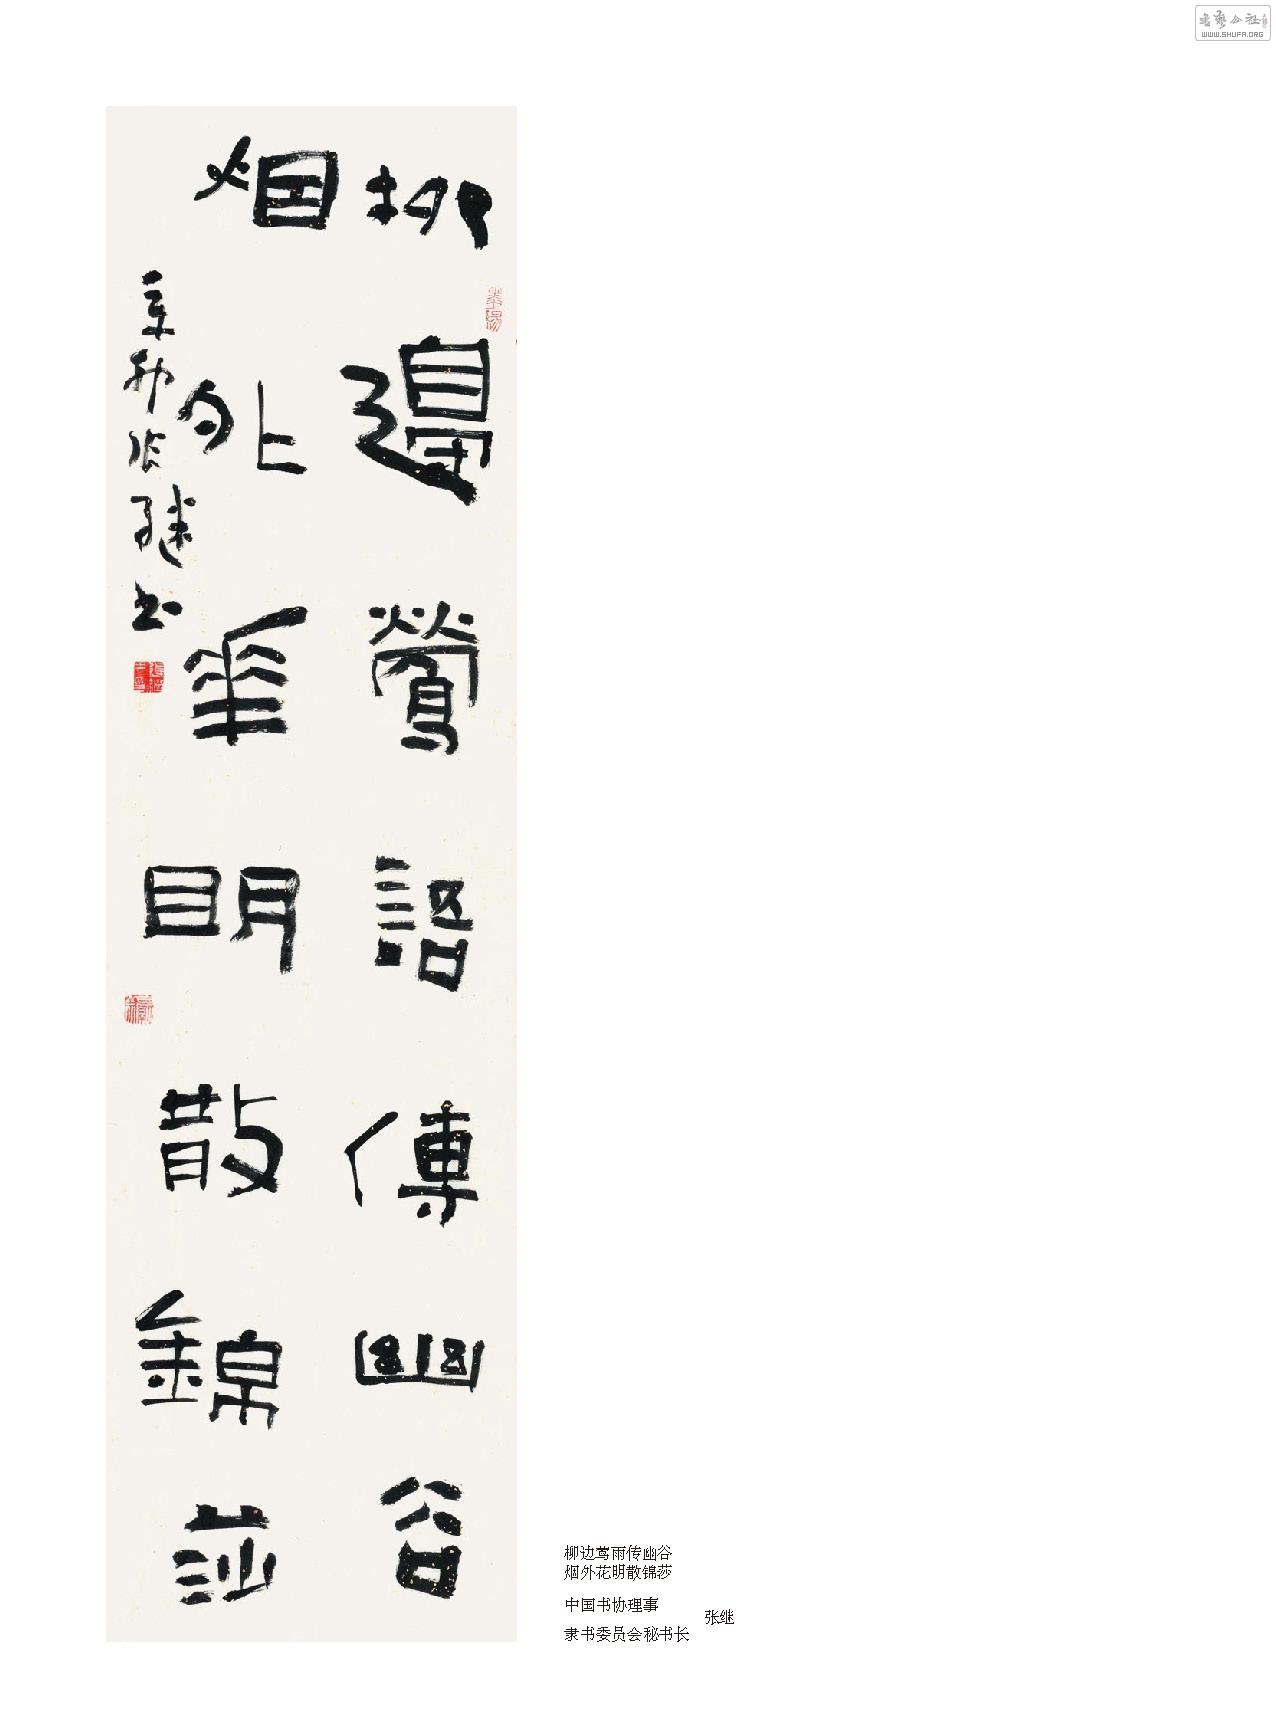 柳邊鶯語傳幽谷
烟外華明散錦莎
辛卯張继书
柳边莺雨传幽谷
烟外花明散锦莎
中国书协理事
隶书委员会秘书长
张继
书艺公社
WWW.SHUFA.ORG